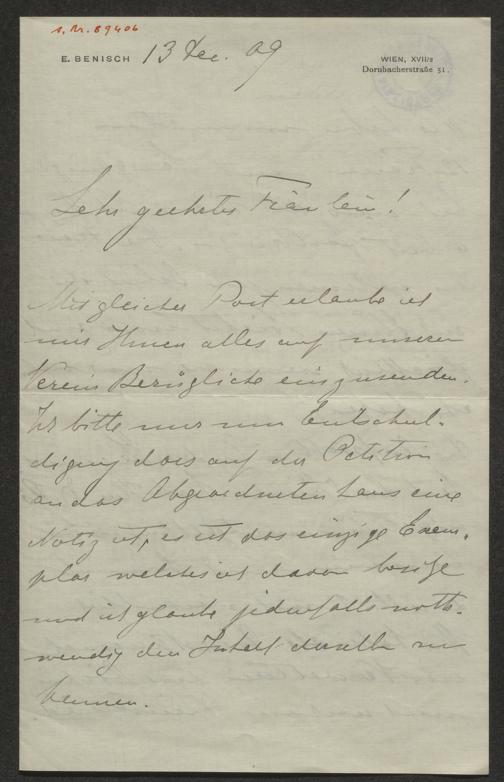 A. Nr. 89406
E. BENISCH 13 Dec. 09
WIEN, XVII/2
Dornbacherstraße 51.
Sehr geehrtes Fräulein!
Mit gleicher Post erlaube ich
mir Ihnen alles auf unseren
Verein Bezügliche einzusenden.
Ich bitte nur um Entschul-
digung dass auf der Petition
an das Abgeordnetenhaus eine
Notiz ist, es ist das einzige Exem-
plar welches ich davon besitze
und ich glaube jedenfalls noth-
wendig den Inhalt derselben zu
kennen.